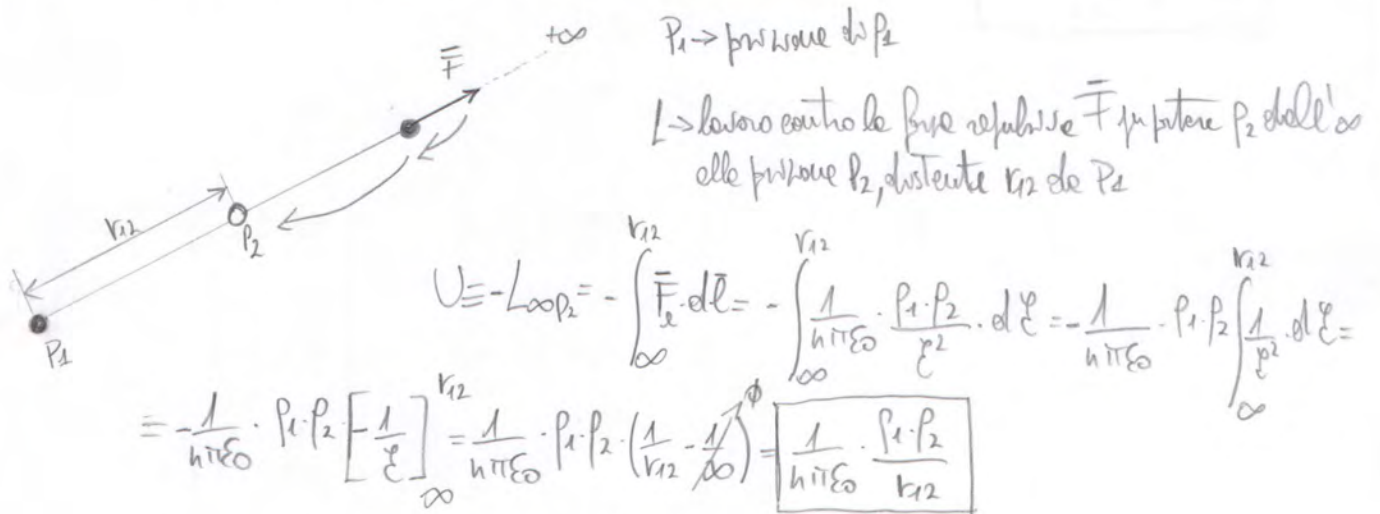 +∞
F̅
P₁ → posizione di ρ₁
L → lavoro contro la forza repulsiva F̅ per portare ρ₂ dall'∞
alla posizione P₂, distante r₁₂ da P₁
r₁₂
P₂
P₁
U ≡ -L∞P₂ = -∫_∞^{r₁₂} F̅ₑ·dl̅ = -∫_∞^{r₁₂} 1/(4πε₀) · (ρ₁·ρ₂)/ξ² · dξ = -1/(4πε₀) · ρ₁·ρ₂ ∫_∞^{r₁₂} 1/ξ² · dξ =
= -1/(4πε₀) · ρ₁·ρ₂ · [-1/ξ]_∞^{r₁₂} = 1/(4πε₀) · ρ₁·ρ₂ · (1/r₁₂ - 1/∞)^{→0} = 1/(4πε₀) · (ρ₁·ρ₂)/r₁₂